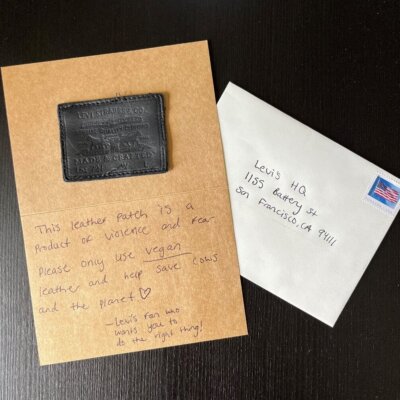 LEVI STRAUSS & CO
MADE & CRAFTED
This leather patch is a
product of violence and fear.
Please only use vegan
leather and help save cows
and the planet ♡
—Levi's Fan who
wants you to
do the right thing!
Levi's HQ
1155 Battery St
San Francisco, CA 94111